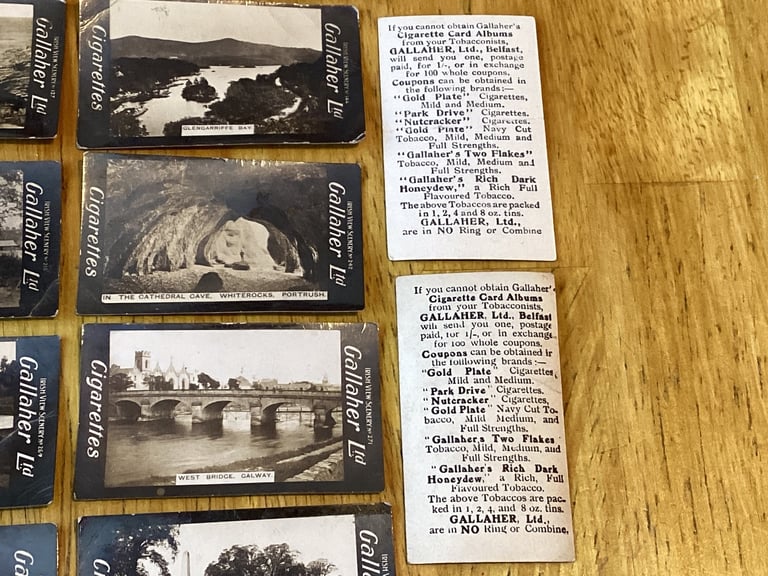 Gallaher Ltd
Cigarettes
GLENGARRIFFE BAY.
Gallaher Ltd
IRISH VIEW SCENERY
If you cannot obtain Gallaher's
Cigarette Card Albums
from your Tobacconists,
GALLAHER, Ltd., Belfast,
will send you one, postage
paid, for 1/-, or in exchange
for 100 whole coupons.
Coupons can be obtained in
the following brands:—
"Gold Plate" Cigarettes,
Mild and Medium.
"Park Drive" Cigarettes.
"Nutcracker" Cigarettes.
"Gold Plate" Navy Cut
Tobacco, Mild, Medium and
Full Strengths.
"Gallaher's Two Flakes"
Tobacco, Mild, Medium and
Full Strengths.
"Gallaher's Rich Dark
Honeydew," a Rich Full
Flavoured Tobacco.
The above Tobaccos are packed
in 1, 2, 4 and 8 oz. tins.
GALLAHER, Ltd.,
are in NO Ring or Combine
Gallaher Ltd
Cigarettes
IN THE CATHEDRAL CAVE, WHITEROCKS, PORTRUSH.
Gallaher Ltd
IRISH VIEW SCENERY
Gallaher Ltd
IRISH VIEW SCENERY
Cigarettes
WEST BRIDGE, GALWAY.
Gallaher Ltd
IRISH VIEW SCENERY Nº 271
If you cannot obtain Gallaher'
Cigarette Card Albums
from your Tobacconists,
GALLAHER, Ltd., Belfast
will send you one, postage
paid, for 1/-, or in exchange
for 100 whole coupons.
Coupons can be obtained in
the following brands:—
"Gold Plate" Cigarettes,
Mild and Medium.
"Park Drive" Cigarettes.
"Nutcracker" Cigarettes,
"Gold Plate" Navy Cut To-
bacco, Mild, Medium, and
Full Strengths.
"Gallaher's Two Flakes
Tobacco, Mild, Medium, and
Full Strengths.
"Gallaher's Rich Dark
Honeydew," a Rich, Full
Flavoured Tobacco.
The above Tobaccos are pac-
ked in 1, 2, 4, and 8 oz. tins.
GALLAHER, Ltd.,
are in NO Ring or Combine,
Gallaher
Galla
IRISH